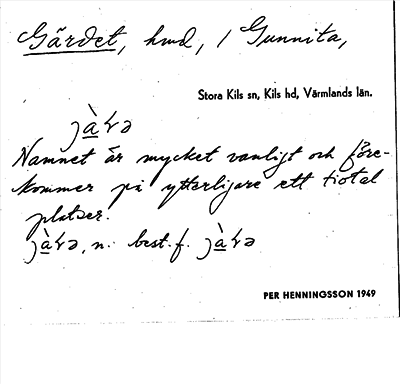 Gärdet, hmd, / Gunnita,
Stora Kils sn, Kils hd, Värmlands län.
Namnet är mycket vanligt och före-
kommer på ytterligare ett tiotal
platser.
n. best. f.
PER HENNINGSSON 1949